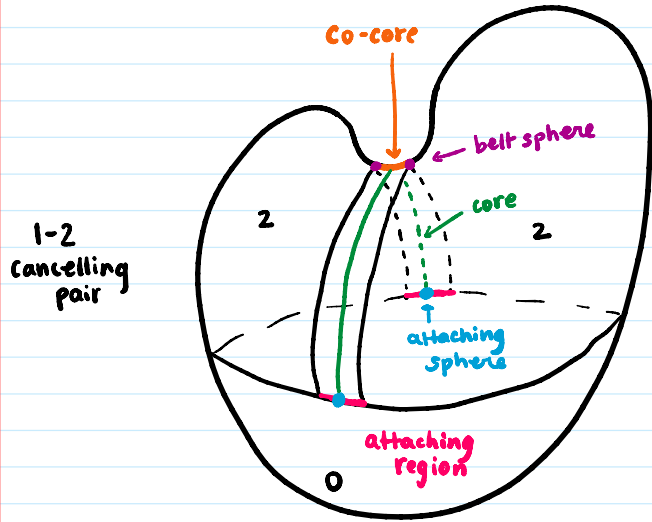 Co-core
belt sphere
core
2
2
1-2
cancelling
pair
attaching
sphere
attaching
region
0